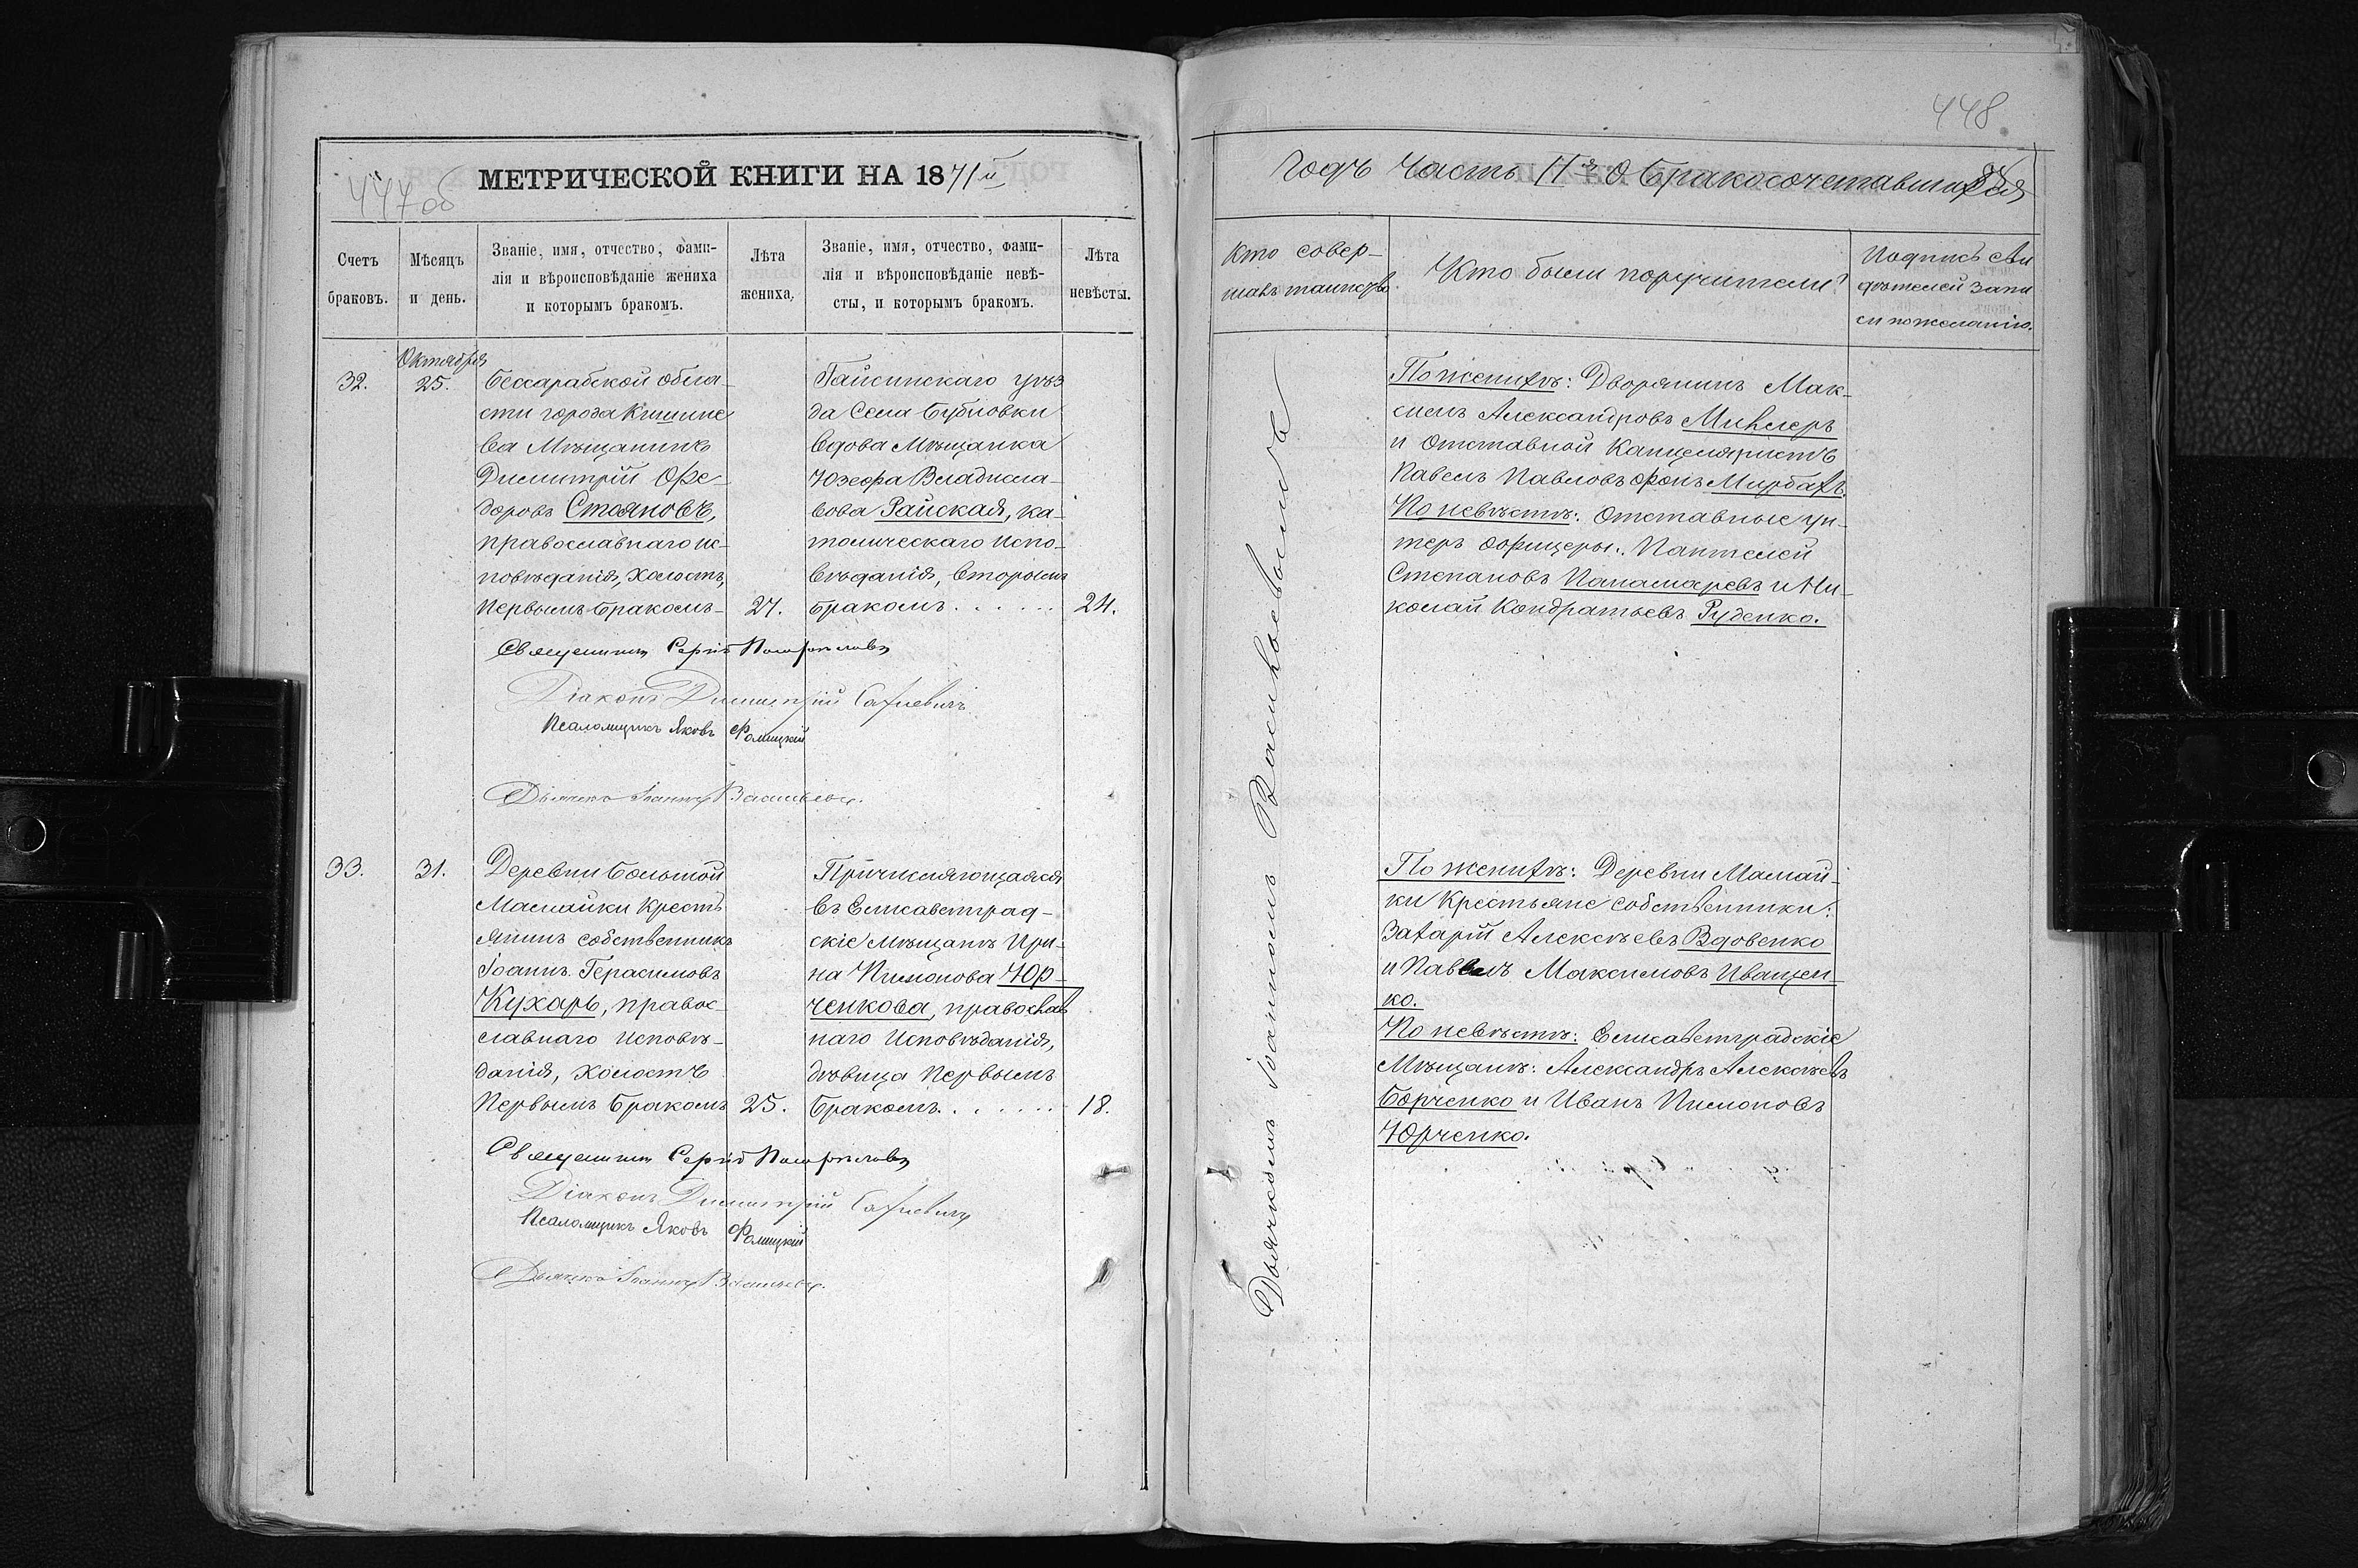 447об
МЕТРИЧЕСКОЙ КНИГИ НА 1871й
Счетъ браковъ.
Мѣсяцъ и день.
Званіе, имя, отчество, фами-
лія и вѣроисповѣданіе жениха
и которымъ бракомъ.
Лѣта жениха.
Званіе, имя, отчество, фами-
лія и вѣроисповѣданіе невѣ-
сты, и которымъ бракомъ.
Лѣта невѣсты.
32.
Октября
25.
Бессарабской обла-
сти города Кишине
ва Мѣщанинъ
Димитрій Ѳео-
доровъ Стояновъ,
православнаго ис-
повѣданія, холостъ,
первымъ бракомъ
27.
Гайсинскаго уѣз
да Села Бубновки
Вдова Мѣщанка
Юзефа Владисла-
вова Райская, ка-
толическаго испо-
вѣданія, вторымъ
бракомъ. . . . . .
24.
Священникъ Сергій
Діаконъ Димитрій
Псаломщикъ Яковъ Фомицкій
Дьячекъ Іоаннъ Васильевъ.
33.
31.
Деревни Большой
Мамайки Кресть
янинъ собственникъ
Іоаннъ Герасимовъ
Кухарь, правос-
славнаго исповѣ-
данія, холостъ
первымъ бракомъ
25.
Причисляющаяся
въ Елисаветград-
скіе мѣщанѣ Ири-
на Пимонова Юр-
ченкова, православ
наго исповѣданія,
дѣвица первымъ
бракомъ. . . . . . .
18.
Священникъ Сергій
Діаконъ Димитрій
Псаломщикъ Яковъ Фомицкій
Дьячекъ Іоаннъ Васильевъ.
448
Годъ Часть IIя О Бракосочетавшихся
Кто совер-
шавъ таинство.
Кто были поручители?
Подпись сви
дѣтелей запи
си по желанію.
Дьячкомъ Іоанномъ Васильевымъ
По женихѣ: Дворянинъ Мак-
симъ Александровъ Миллеръ
и Отставной Канцеляристъ
Павелъ Павловъ фонъ Мирбахъ.
По невѣстѣ: Отставные ун-
теръ офицеры: Пантелей
Степановъ Панамаревъ и Ни-
колай Кондратьевъ Руденко.
По женихѣ: Деревни Мамай-
ки Крестьяне собственники:
Захарій Алексѣевъ Вдовенко
и Павелъ Максимовъ Иващен-
ко.
По невѣстѣ: Елисаветградскіе
Мѣщанѣ: Александръ Алексѣевъ
Борченко и Иванъ Пимоновъ
Юрченко.